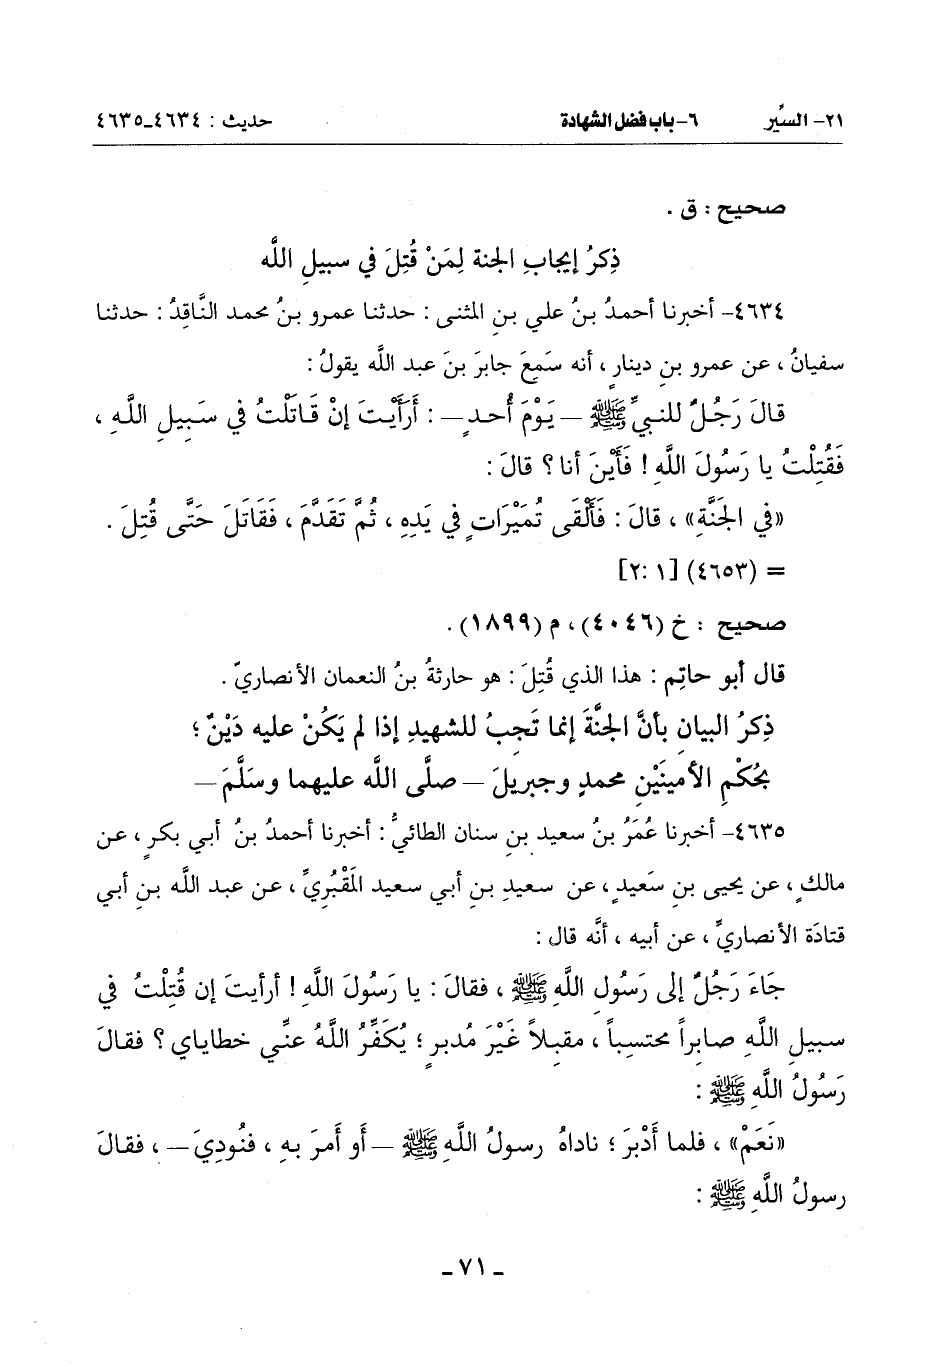 ٢١- السِّير ٦- باب فضل الشهادة حديث : ٤٦٣٤-٤٦٣٥
صحيح : ق .
ذِكرُ إيجابِ الجنة لِمَنْ قُتِلَ في سبيلِ اللَّه
٤٦٣٤- أخبرنا أحمدُ بنُ علي بنِ المثنى : حدثنا عمرو بنُ محمد النَّاقِدُ : حدثنا
سفيانُ ، عن عمرو بنِ دينارٍ ، أنه سَمِعَ جابرَ بنَ عبد اللَّه يقولُ :
قالَ رَجُلٌ للنبيِّ ﷺ – يَوْمَ أُحدٍ – : أَرَأَيْتَ إنْ قَاتَلْتُ في سَبيلِ اللَّهِ ،
فَقُتِلْتُ يا رَسُولَ اللَّهِ ! فَأَيْنَ أنا ؟ قالَ :
«في الجَنَّةِ» ، قالَ : فَأَلْقَى تُمَيْرَاتٍ في يَدِهِ ، ثُمَّ تَقَدَّمَ ، فَقَاتَلَ حَتَّى قُتِلَ .
= (٤٦٥٣) [١ :٢]
صحيح : خ (٤٠٤٦) ، م (١٨٩٩) .
قال أبو حاتِم : هذا الذي قُتِلَ : هو حارثةُ بنُ النعمان الأنصاريّ .
ذِكرُ البيان بأنَّ الجنَّةَ إنما تَجبُ للشهيدِ إذا لم يَكُنْ عليه دَيْنٌ ؛
بحُكْمِ الأمينَيْنِ محمدٍ وجبريلَ – صلَّى اللَّه عليهما وسَلَّمَ –
٤٦٣٥- أخبرنا عُمَرُ بنُ سعيد بنِ سنان الطائيُّ : أخبرنا أحمدُ بنُ أبي بكرٍ ، عن
مالكٍ ، عن يحيى بنِ سَعيدٍ ، عن سعيدِ بنِ أبي سعيد المَقْبُريِّ ، عن عبد اللَّه بنِ أبي
قتادَة الأنصاريِّ ، عن أبيه ، أنَّه قال :
جَاءَ رَجُلٌ إلى رَسُولِ اللَّهِ ﷺ ، فقالَ : يا رَسُولَ اللَّهِ ! أرأيتَ إن قُتِلْتُ في
سبيلِ اللَّهِ صابراً محتسِباً ، مقبلاً غَيْرَ مُدبرٍ ؛ يُكَفِّرُ اللَّهُ عنِّي خطاياي ؟ فقالَ
رَسُولُ اللَّهِ ﷺ :
«نَعَمْ» ، فلما أَدْبَرَ ؛ ناداهُ رسولُ اللَّهِ ﷺ – أو أَمرَ بهِ ، فنُودِيَ – ، فقالَ
رسولُ اللَّهِ ﷺ :
- ٧١ -